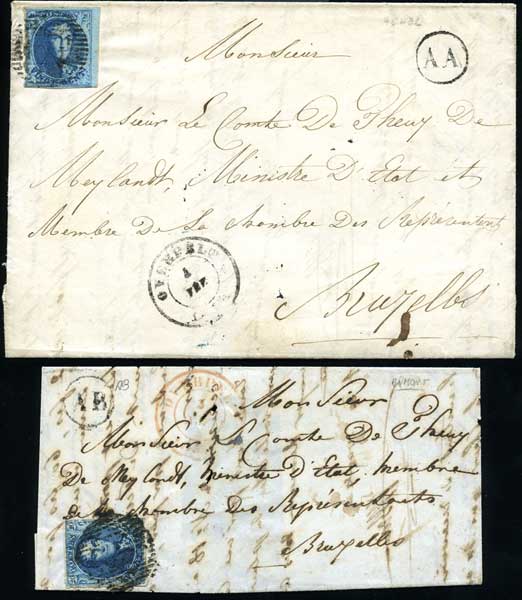 Monsieur
A A
Monsieur Le Comte De Theux De
Meylandt, Ministre D'Etat et
Membre De La Chambre Des Représentents
Bruxelles
AB
A B
Monsieur
Monsieur L Comte De Theux
De Meylandt, ministre D'Etat, membre
de la chambre Des Représentants
Bruxelles